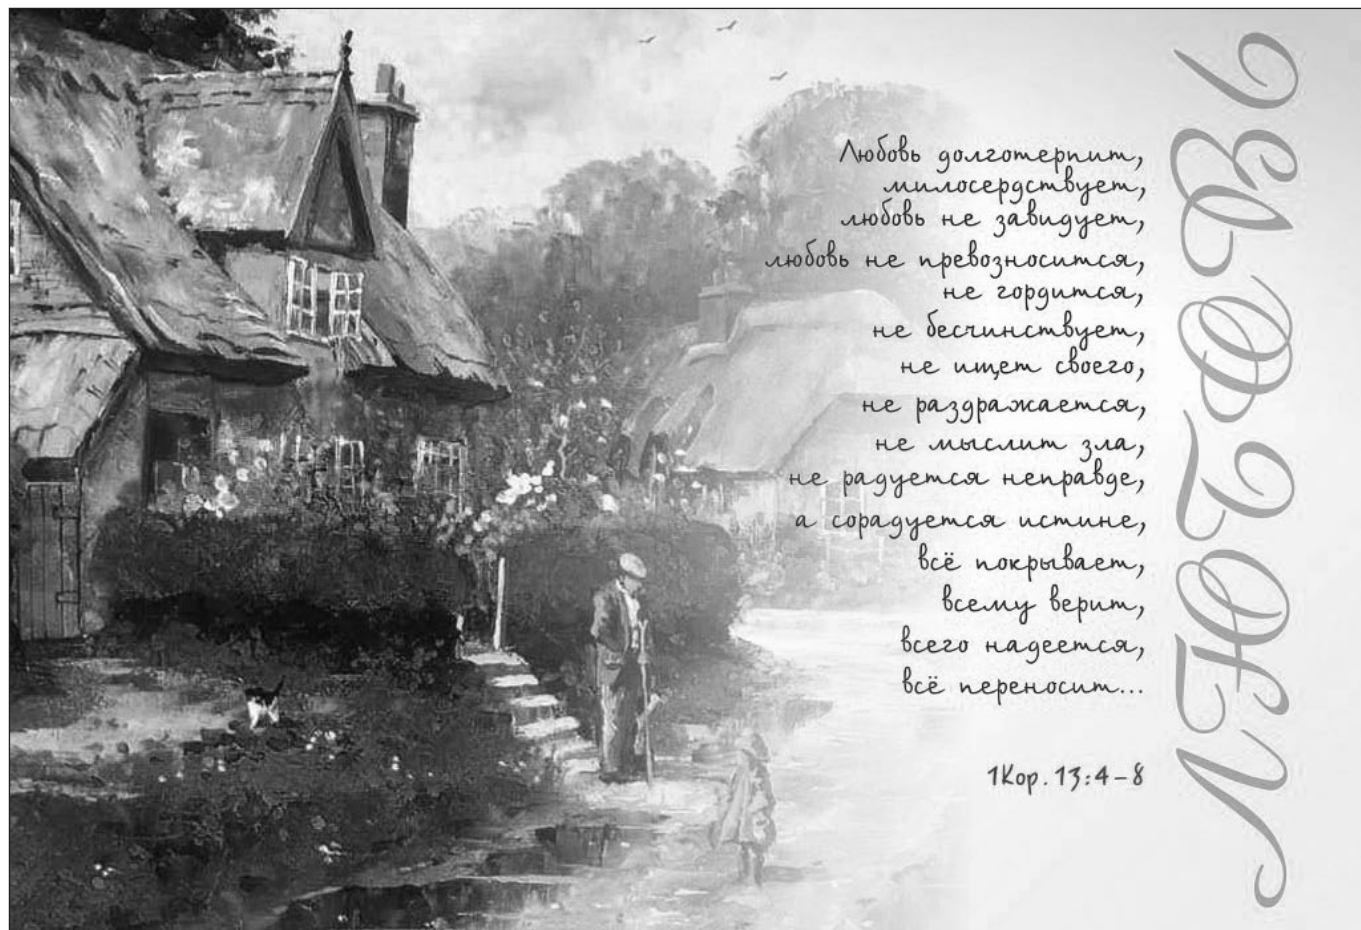 Любовь долготерпит,
милосердствует,
любовь не завидует,
любовь не превозносится,
не гордится,
не бесчинствует,
не ищет своего,
не раздражается,
не мыслит зла,
не радуется неправде,
а сорадуется истине,
всё покрывает,
всему верит,
всего надеется,
всё переносит...
1Кор. 13:4–8
ЛЮБОВЬ